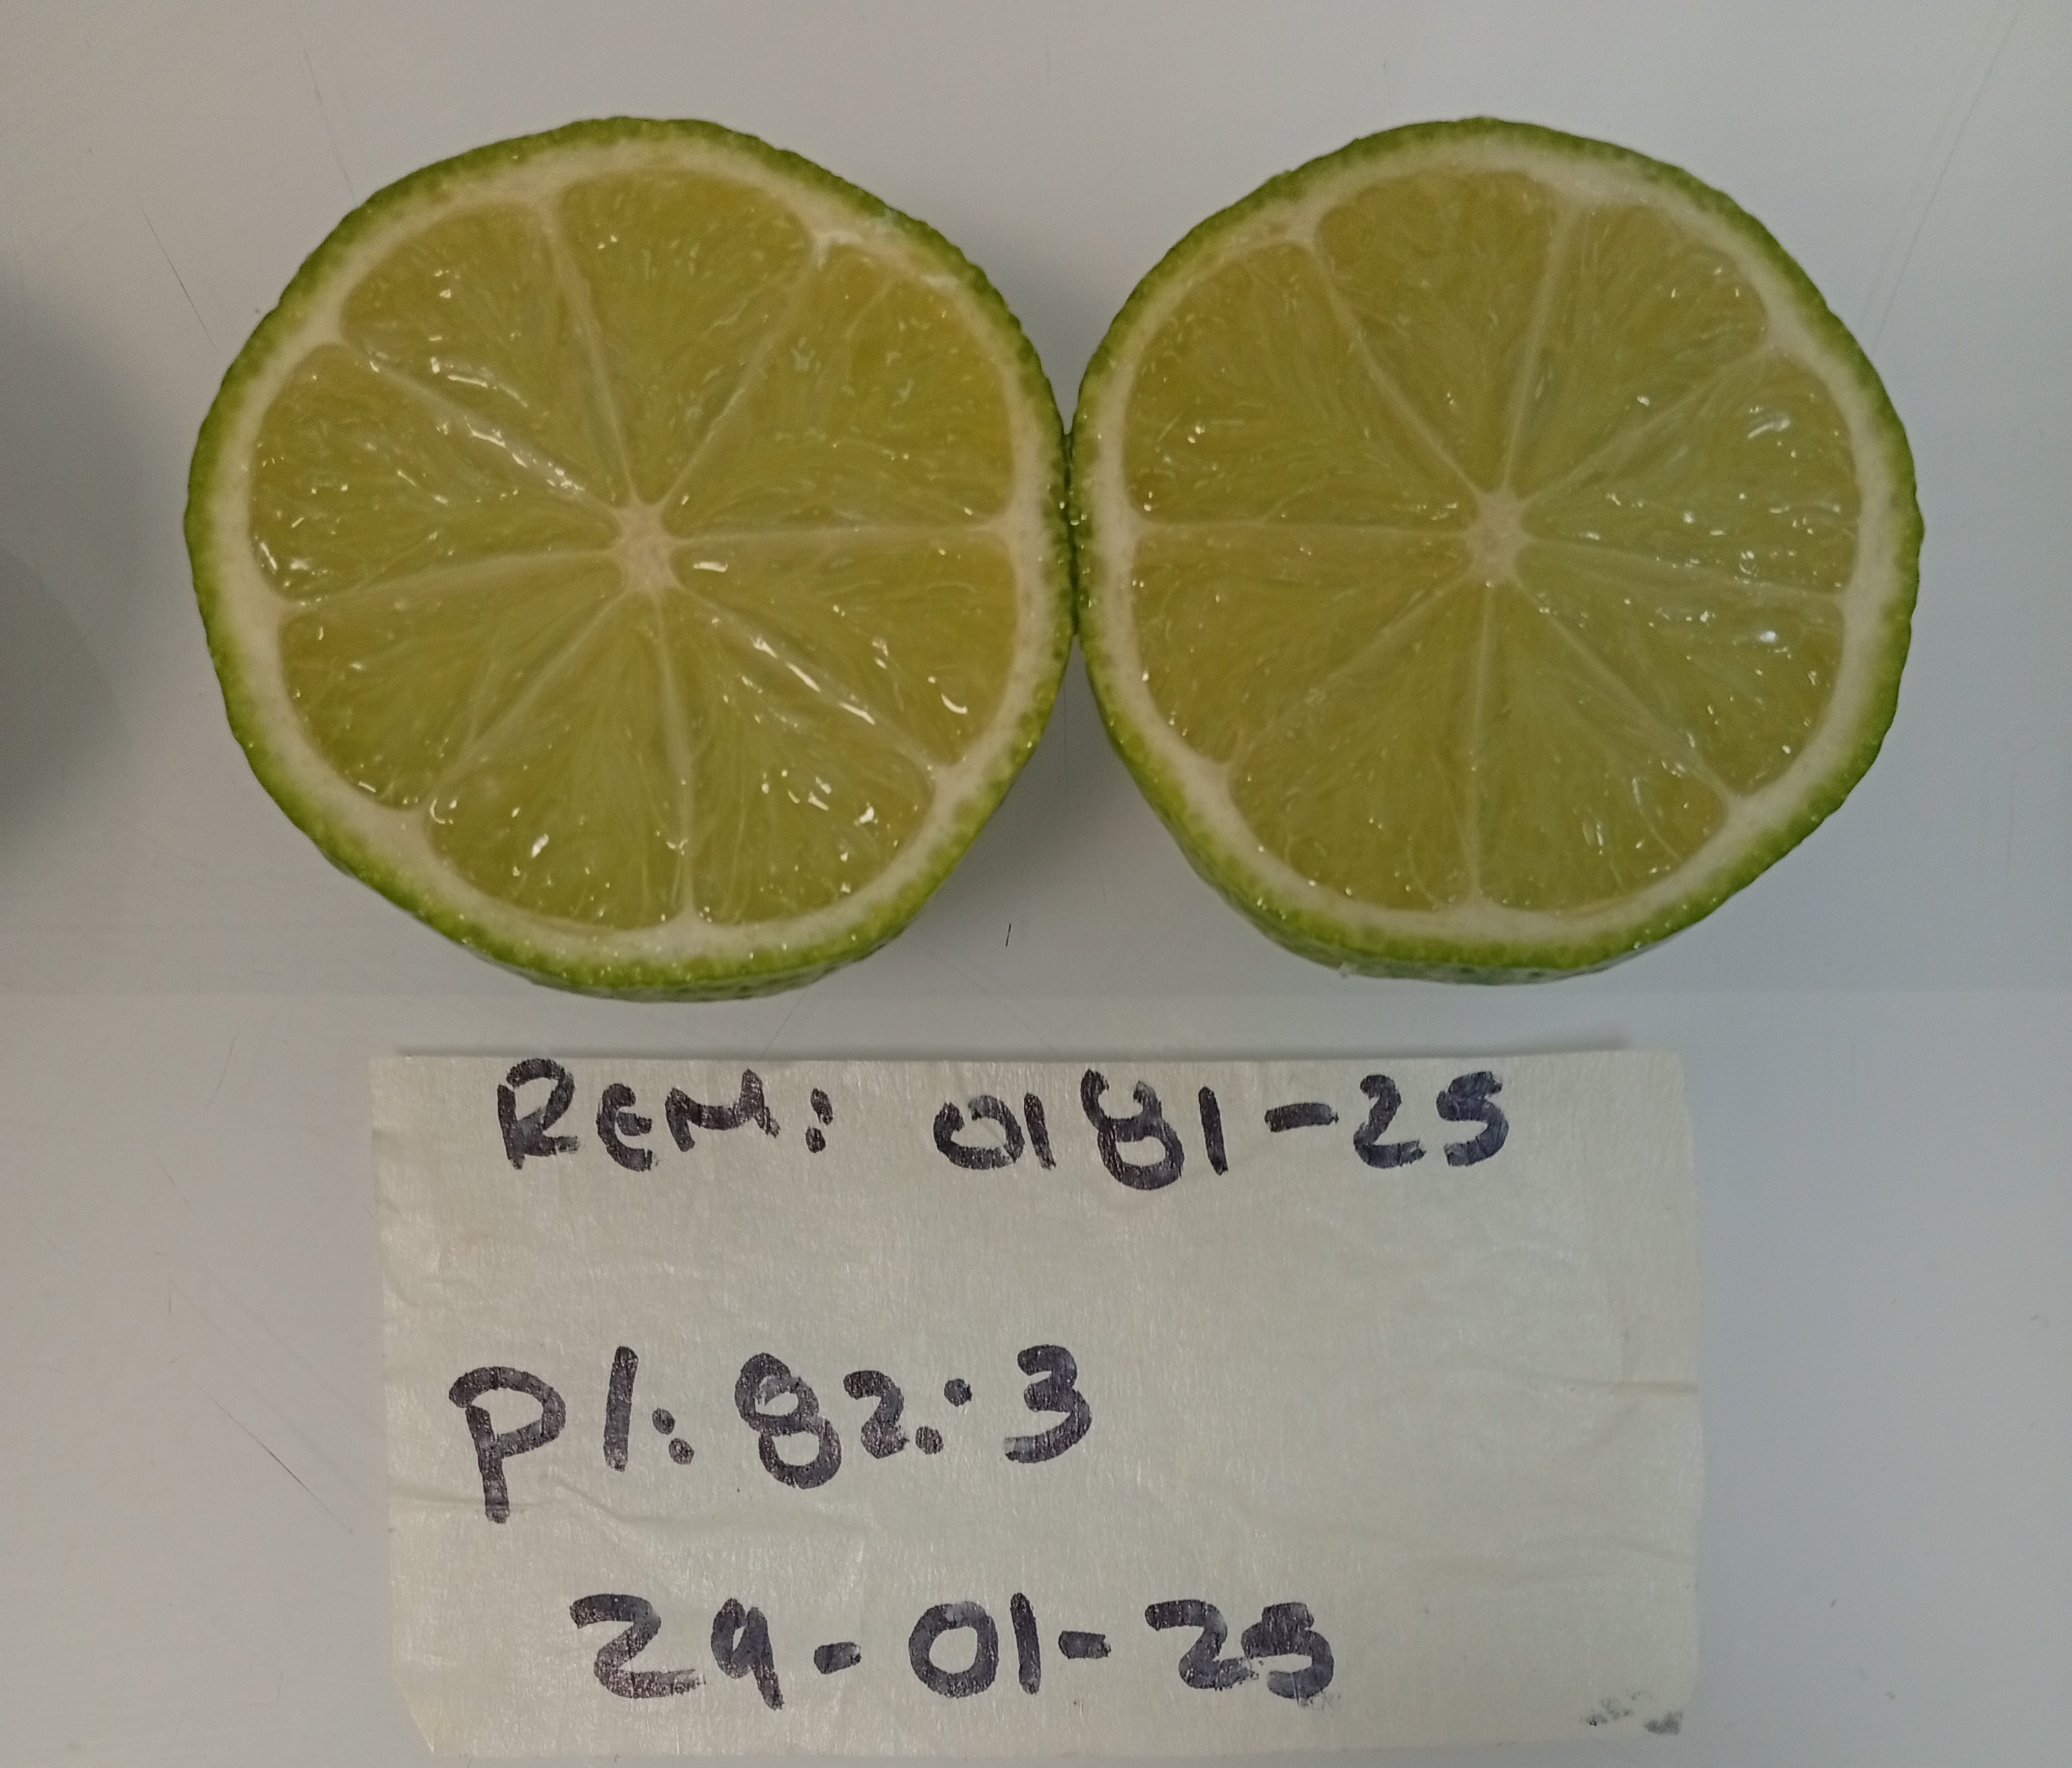 REM: 0181-25
Pl: 82:3
29-01-25